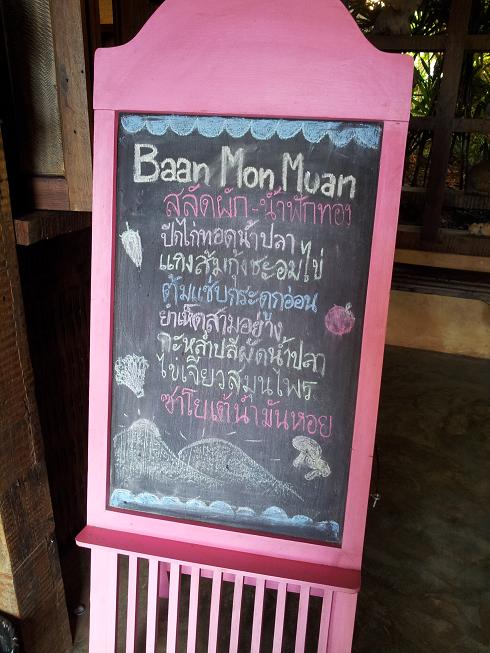 Baan Mon Muan
สลัดผัก-น้ำฟักทอง
ปีกไก่ทอดน้ำปลา
แกงส้มกุ้งชะอมไข่
ต้มแซ่บกระดูกอ่อน
ยำเห็ดสามอย่าง
กะหล่ำปลีผัดน้ำปลา
ไข่เจียวสมุนไพร
ซาโยเต้น้ำมันหอย